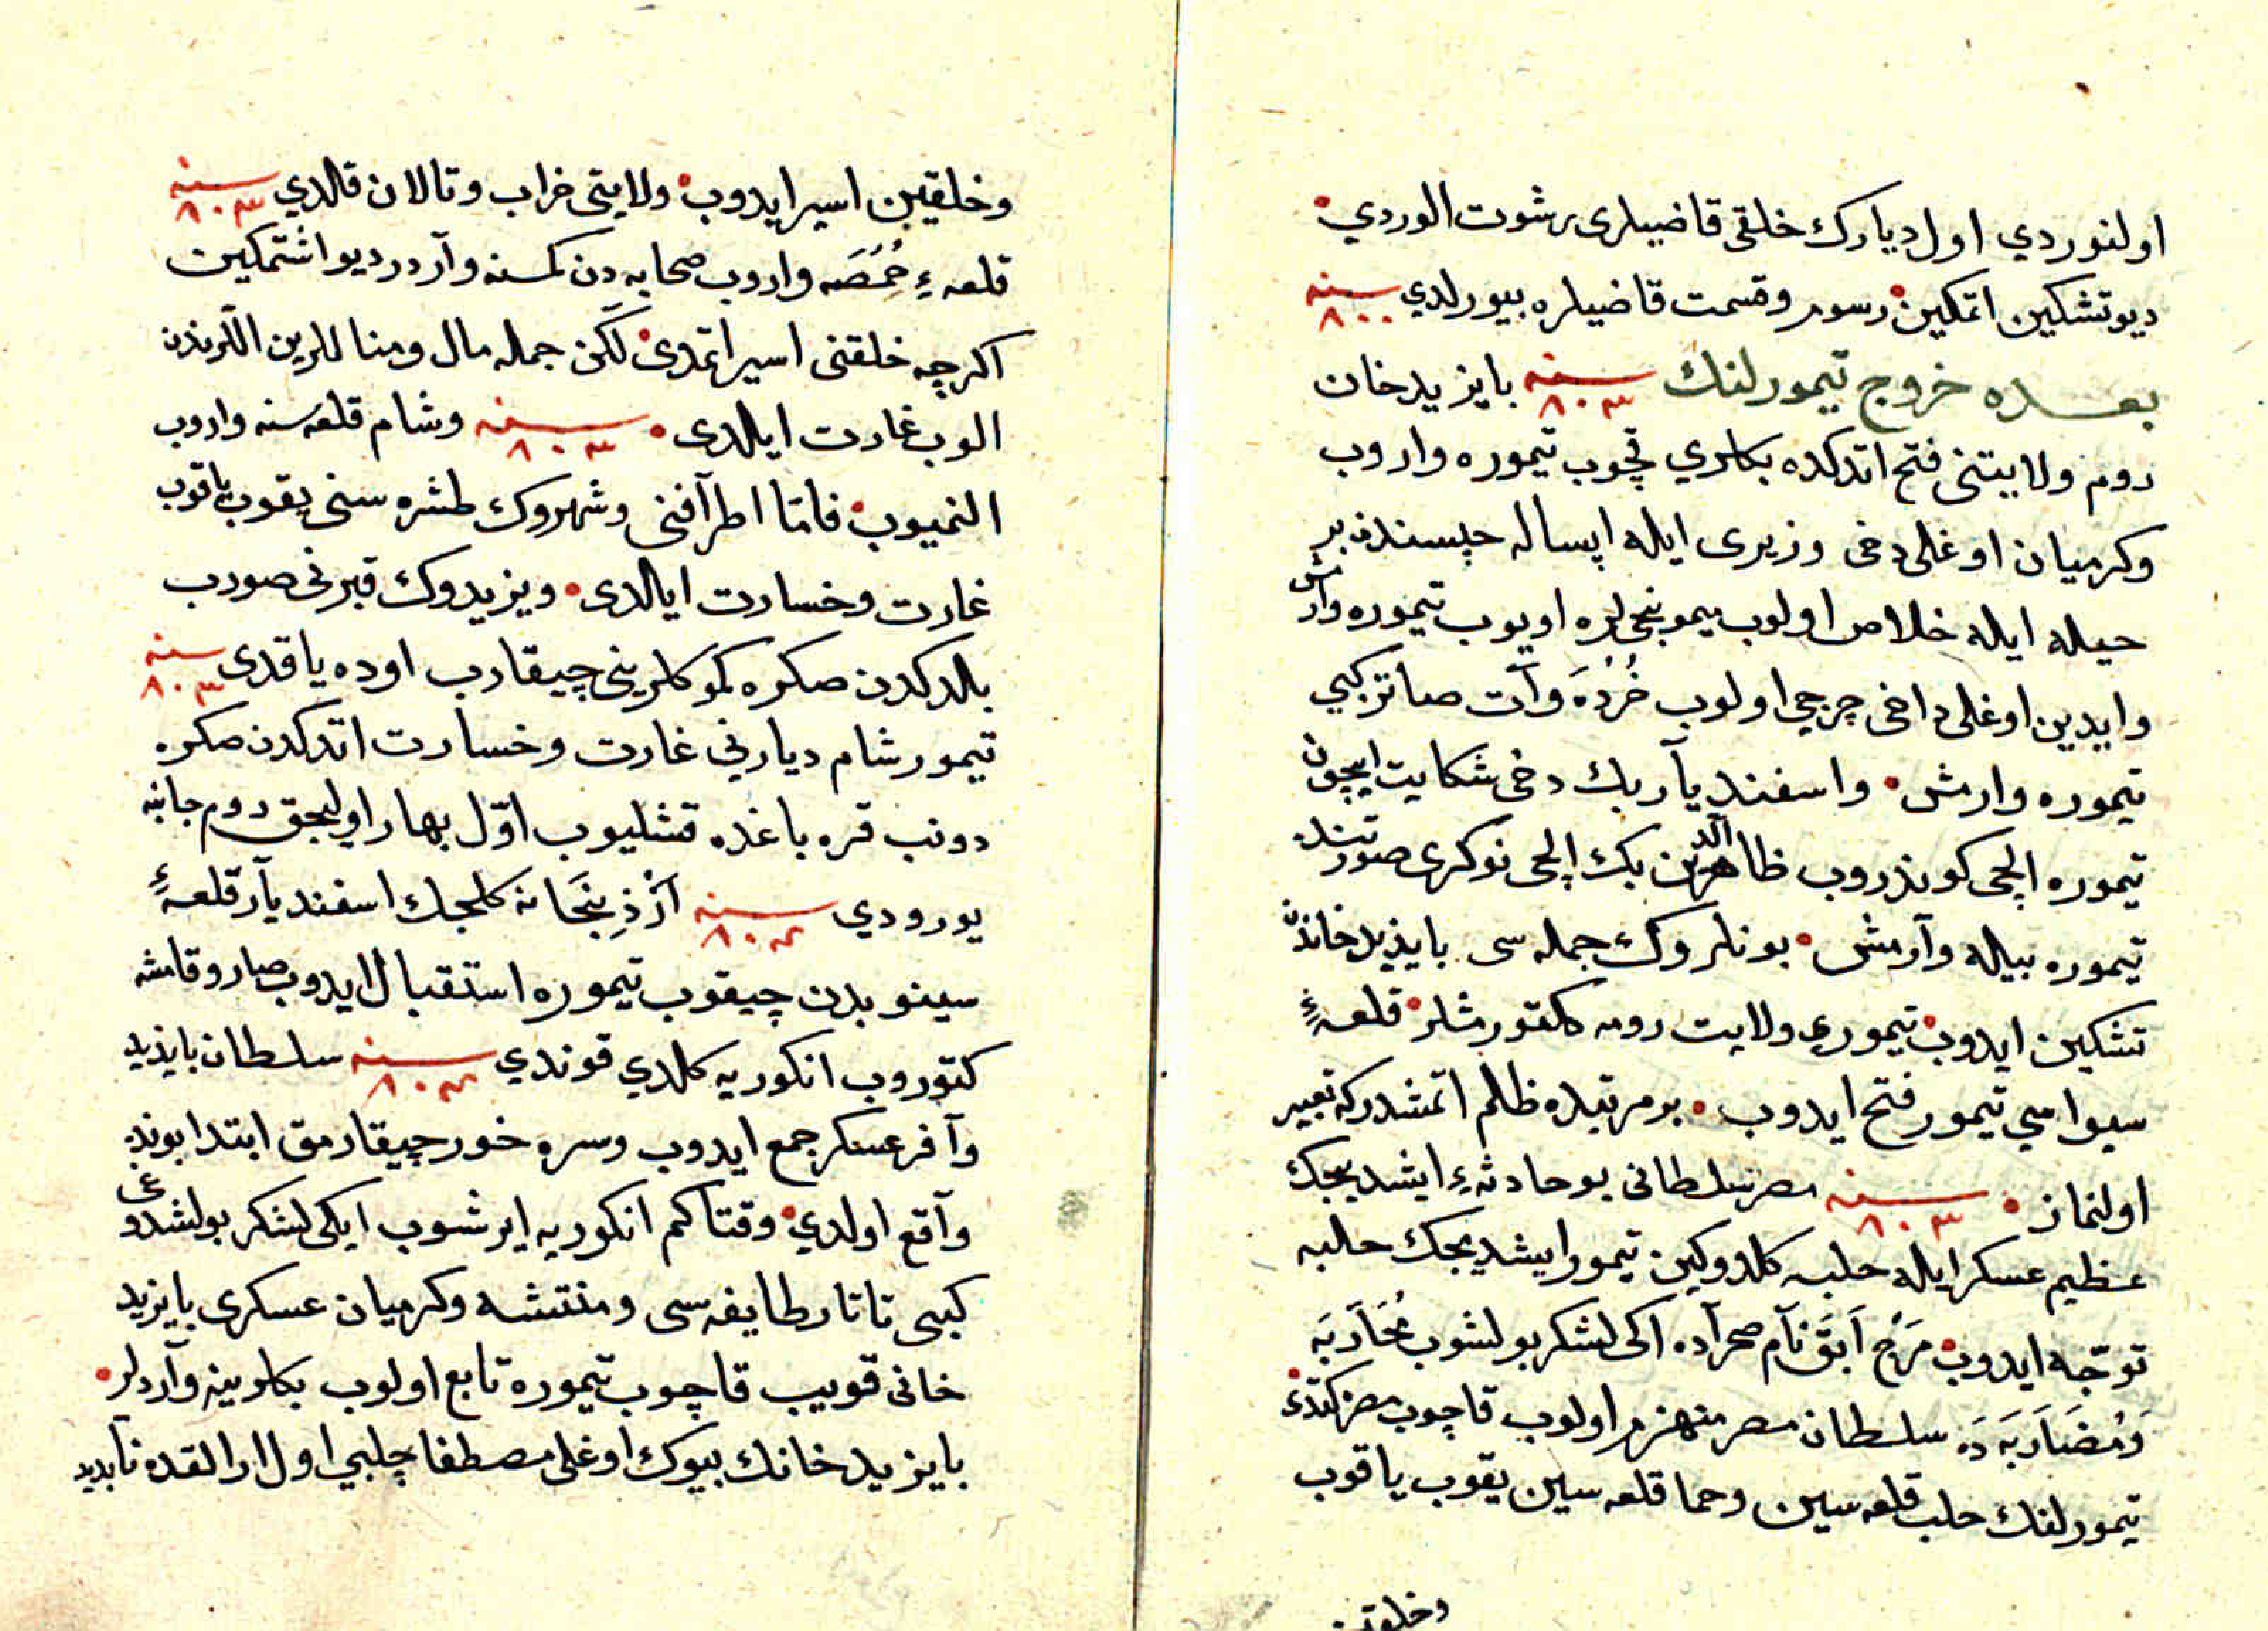 اولنوردي اول ديارك خلقى قاضيلرى رشوت الوردي
ديو تشكين اتمكين رسوم وقسمت قاضيلره بيورلدي سنه ٨٠٠
بعده خروج تيمورلنك سنه ٨٠٣ بايزيد خان
روم ولايتنى فتح اتدكده بكلري قچوب تيموره واروب
وكرميان اوغلى دخى وزيرى ايله اپساله حپسندن بر
حيله ايله خلاص اولوب ميمونجى لره اويوب تيموره وارمش
وايدين اوغلى داخى چرچى اولوب خُرْدَه وآت صاتر كبي
تيموره وارمش واسفنديآر بك دخى شكايت ايچون
تيموره الچى كوندروب ظاهرالدين بك الچى نوكرى صورتنده
تيموره بيله وآرمش بونلروك جمله سى بايذيد خاندن
تشكين ايدوب تيمورى ولايت رومه كلتورمشلر قلعهٔ
سيواسي تيمور فتح ايدوب بر مرتبده ظلم اتمشدر كه تعبير
اولنماز سنه ٨٠٣ مصر سلطانى بو حادثهء ايشديجك
عظيم عسكر ايله حلبه كلدوكين تيمور ايشديجك حلبه
توجّه ايدوب مَرْج اَبَقْ نآم صحرآده اكى لشكر بولشوب مُحَآرَبَه
وَمُضَارَبَه دَه سلطان مصر منهزم اولوب قاچوب مصره كتدى
تيمورلنك حلب قلعه سين وحما قلعه سين يقوب ياقوب
وخلقين
وخلقين اسير ايدوب ولايتى خراب وتالان قالدي سنه ٨٠٣
قلعهء حُمُصَه واروب صحابه دن كمسنه وآردر ديو اشتمكين
اكرچه خلقنى اسير اتمدى لكن جمله مال ومناللرين اللرندن
الوب غارت ايلدى سنه ٨٠٣ وشام قلعه سنه واروب
النميوب فامّا اطرآفنى وشهروك طشره سنى يقوب ياقوب
غارت وخسارت ايالدى ويزيدوك قبرنى صورب
بالدكدن صكره كموكلرينى چيقارب اوده ياقدى سنه ٨٠٣
تيمور شام ديارني غارت وخسارت اتدكدن صكره
دونب قره باغده قشليوب اوّل بهار اوليجق روم جانبنه
يورودي سنه ٨٠٤ آرْذِنْجَانه كلجك اسفنديآر قلعهٔ
سينوبدن چيقوب تيموره استقبال ايدوب صاروقامشه
كتوروب انكوريه كلدي قوندي سنه ٨٠٤ سلطان بايذيد
وآفر عسكر جمع ايدوب وسره خور چيقارمق ابتدا بونده
وآقع اولدي وقتاكم انكوريه ايرشوب ايكى لشكر بولشدوغى
كبى تاتار طايفه سى ومنتشه وكرميان عسكرى بايزيد
خانى قويب قاچوب تيموره تابع اولوب بكلرينه وآردلر
بايزيد خانك بيوك اوغلى مصطفا چلبي اول ارالقده نآبديد